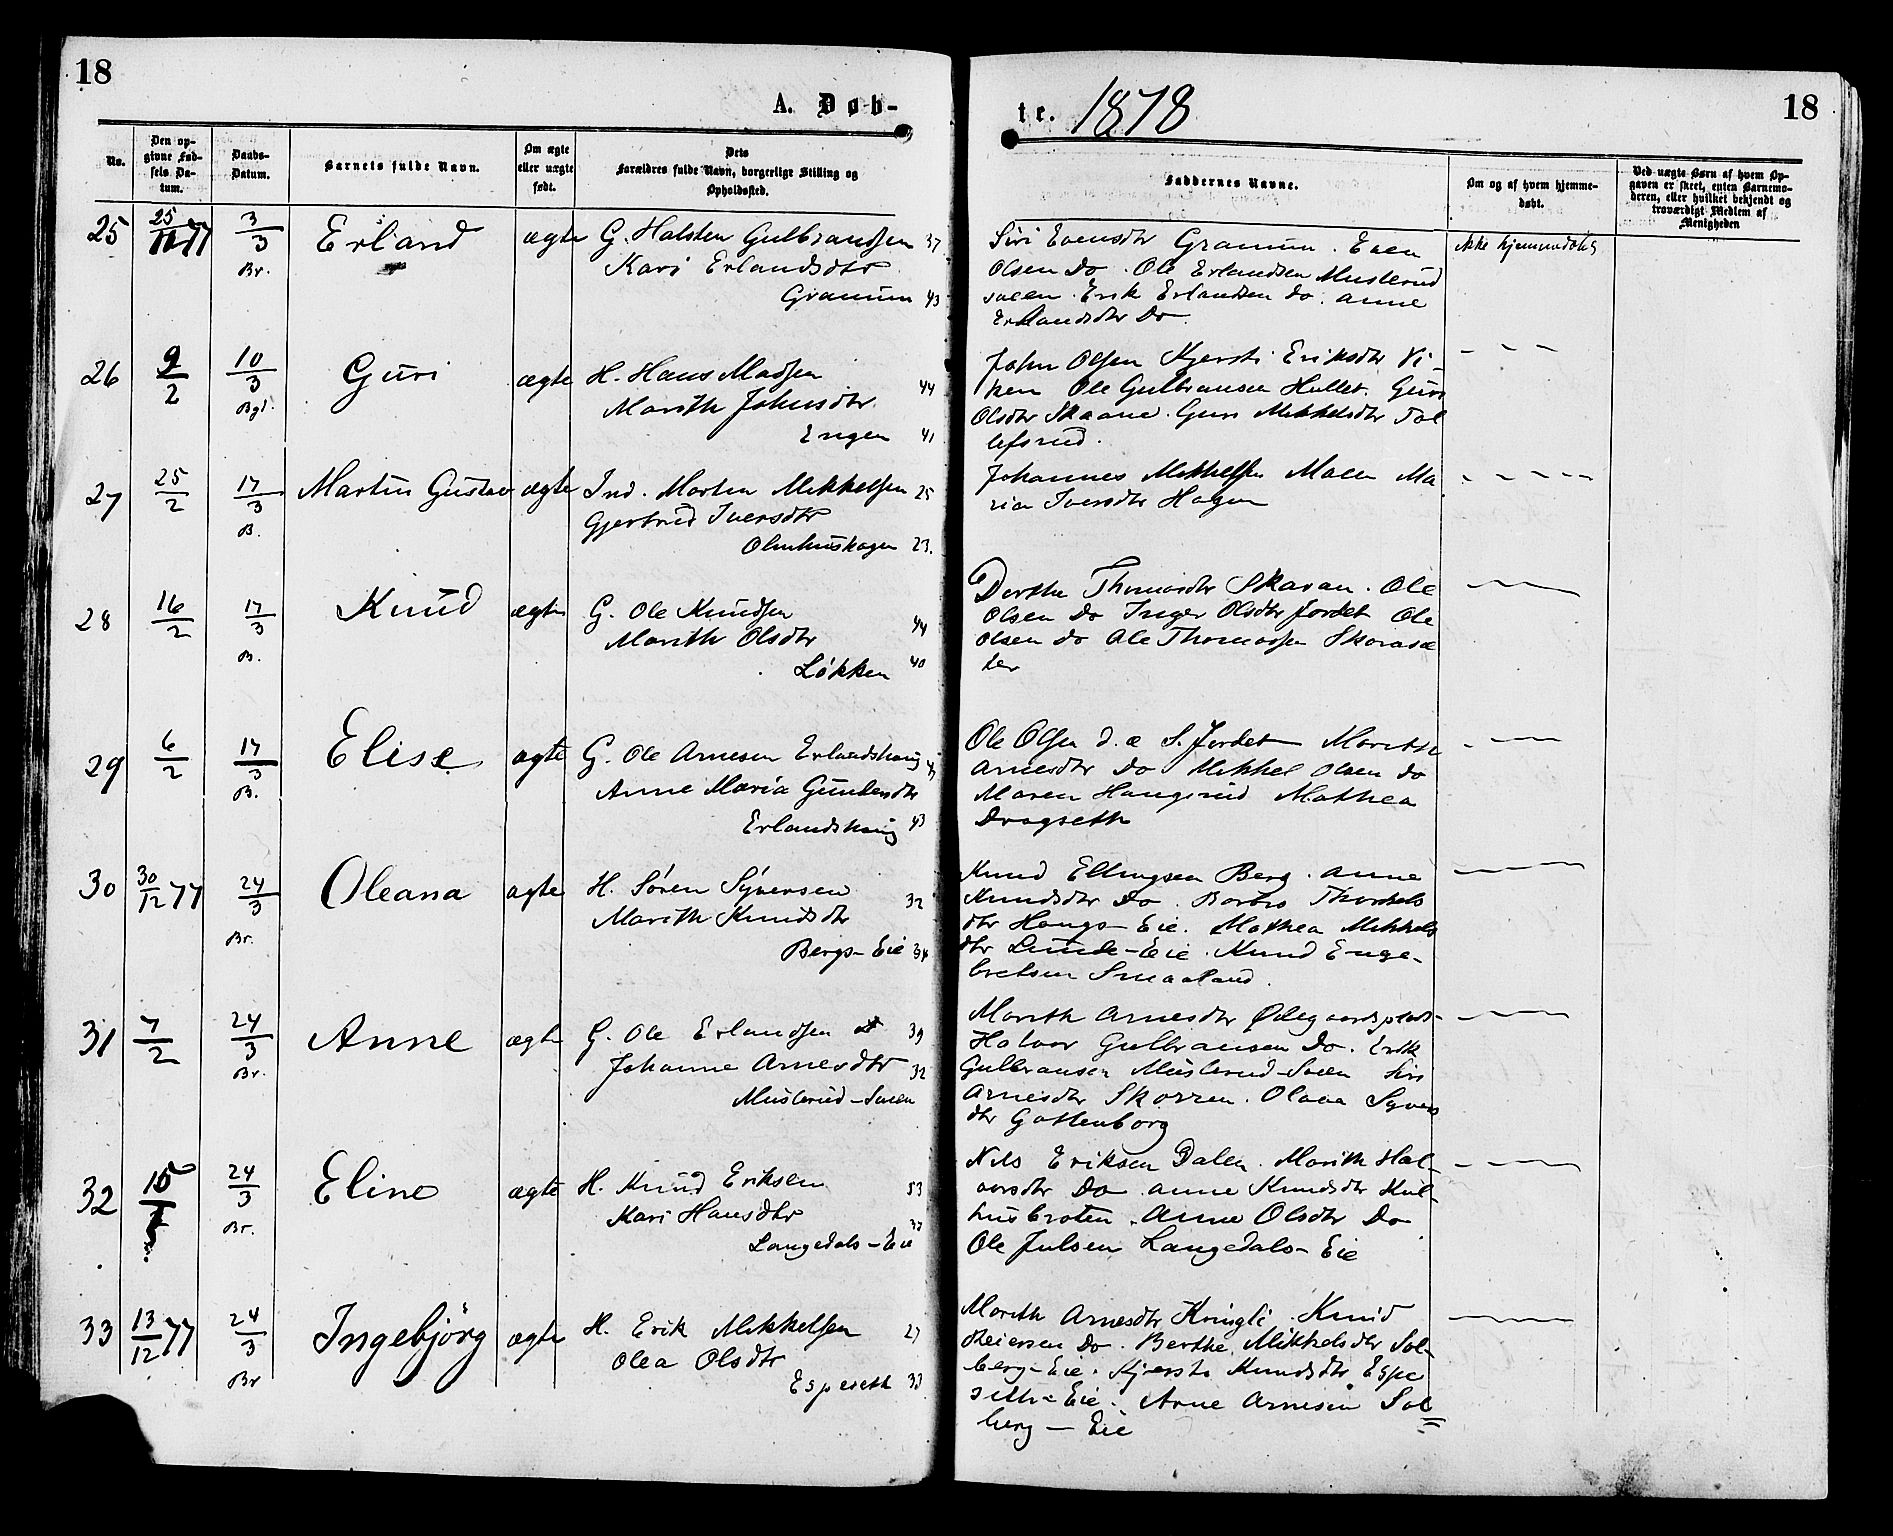 18
A. Døb-
te. 1878
18
No.
Den op-
givne Fød-
sels Da-
tum.
Daabs-
Datum.
Barnets fulde Navn.
Om ægte
eller uægte
født.
Dets
Forældres fulde Navn, borgerlige Stilling og
Opholdssted.
Faddernes Navne.
Om og af hvem hjemme-
døbt.
Ved uægte Børn af hvem Op-
gaven er skeet, enten Barnemo-
deren, eller hvilket bekjendt og
troværdigt Medlem af
Menigheden
25 25/11 77 3/3 Br. Erland ægte G. Halsten Gulbrandsen 37
Kari Erlandsdtr
Granum 43
Siri Evensdtr Granum. Even
Olsen Do. Ole Erlandsen Musterud
sveen. Erik Erlandsen Do. Anne
Erlandsdtr Do.
ikke hjemmedøbt
26 9/2 10/3 Guri ægte H. Hans Madsen 44
Marith Johnsdtr
Engen 41
John Olsen Kjersti Eriksdtr Vi-
ken Ole Gulbransen Hullet. Guri
Olsdtr Skaane. Guri Mikkelsdtr Tol
lefsrud.
27 25/2 17/3 B. Martin Gustav ægte Ind. Morten Mikkelsen 25
Gjertrud Iversdtr
Olmhuskagen 23.
Johannes Mikkelsen Maen Ma
ria Iversdtr Hagen
28 16/2 17/3 B. Knud ægte G. Ole Knudsen 44
Marith Olsdtr
Løkken 40
Dorthe Thomasdtr Skaran. Ole
Olsen Do Inger Olsdtr Jordet Ole
Olsen do Ole Thomassen Skorasæ
ter
29 6/2 17/3 B. Elise ægte G. Ole Arnesen Erlandshaug
Anne Maria Gundersdtr
Erlandshaug 43
Ole Olsen d. æ S. Jordet Marith
Arnesdtr Do Mikkel Olsen do
Maren Haugsrud Mathea
Dragseth
30 30/12 77 24/3 Br. Oleana ægte H. Søren Syversen 32
Marith Knudsdtr
Bergs-Eie 34
Knud Ellingsen Berg. Anne
Knudsdtr Do. Barbro Thorkels
dtr Haugs-Eie. Mathea Mikkels
dtr Lunde-Eie. Knud Enge-
bretsen Smaaland.
31 7/2 24/3 Br. Anne ægte G. Ole Erlandsen 39
Johanne Arnesdtr 32
Musterud-Sveen
Marith Arnesdtr Ødegaardsplads-
Halvor Gulbransen Do. Erik
Gulbransen Musterud-Sveen Siri
Arnesdtr Skorren. Olava Syvers
dtr Gottenborg
32 15 24/3 Br. Eline ægte H. Knud Eriksen 53
Kari Hansdtr
Langedals-Eie 37
Nils Eriksen Dalen. Marith Hal-
vorsdtr Do. Anne Knudsdtr Kul-
husbroten. Anne Olsdtr Do
Ole Julsen Langedals-Eie
33 13/12 77 24/3 Br Ingebjørg ægte H. Erik Mikkelsen 27
Olea Olsdtr
Espeseth 33
Marith Arnesdtr Kringli. Knud
Reiersen Do. Berthe Mikkelsdtr Sol-
berg-Eie. Kjersti Knudsdtr Espe
seth-Eie. Arne Arnesen Sol
berg-Eie